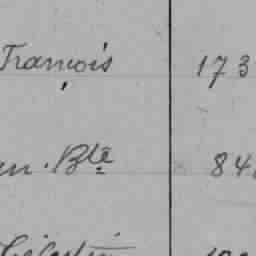 François 173
en. Bte 84
Célestin